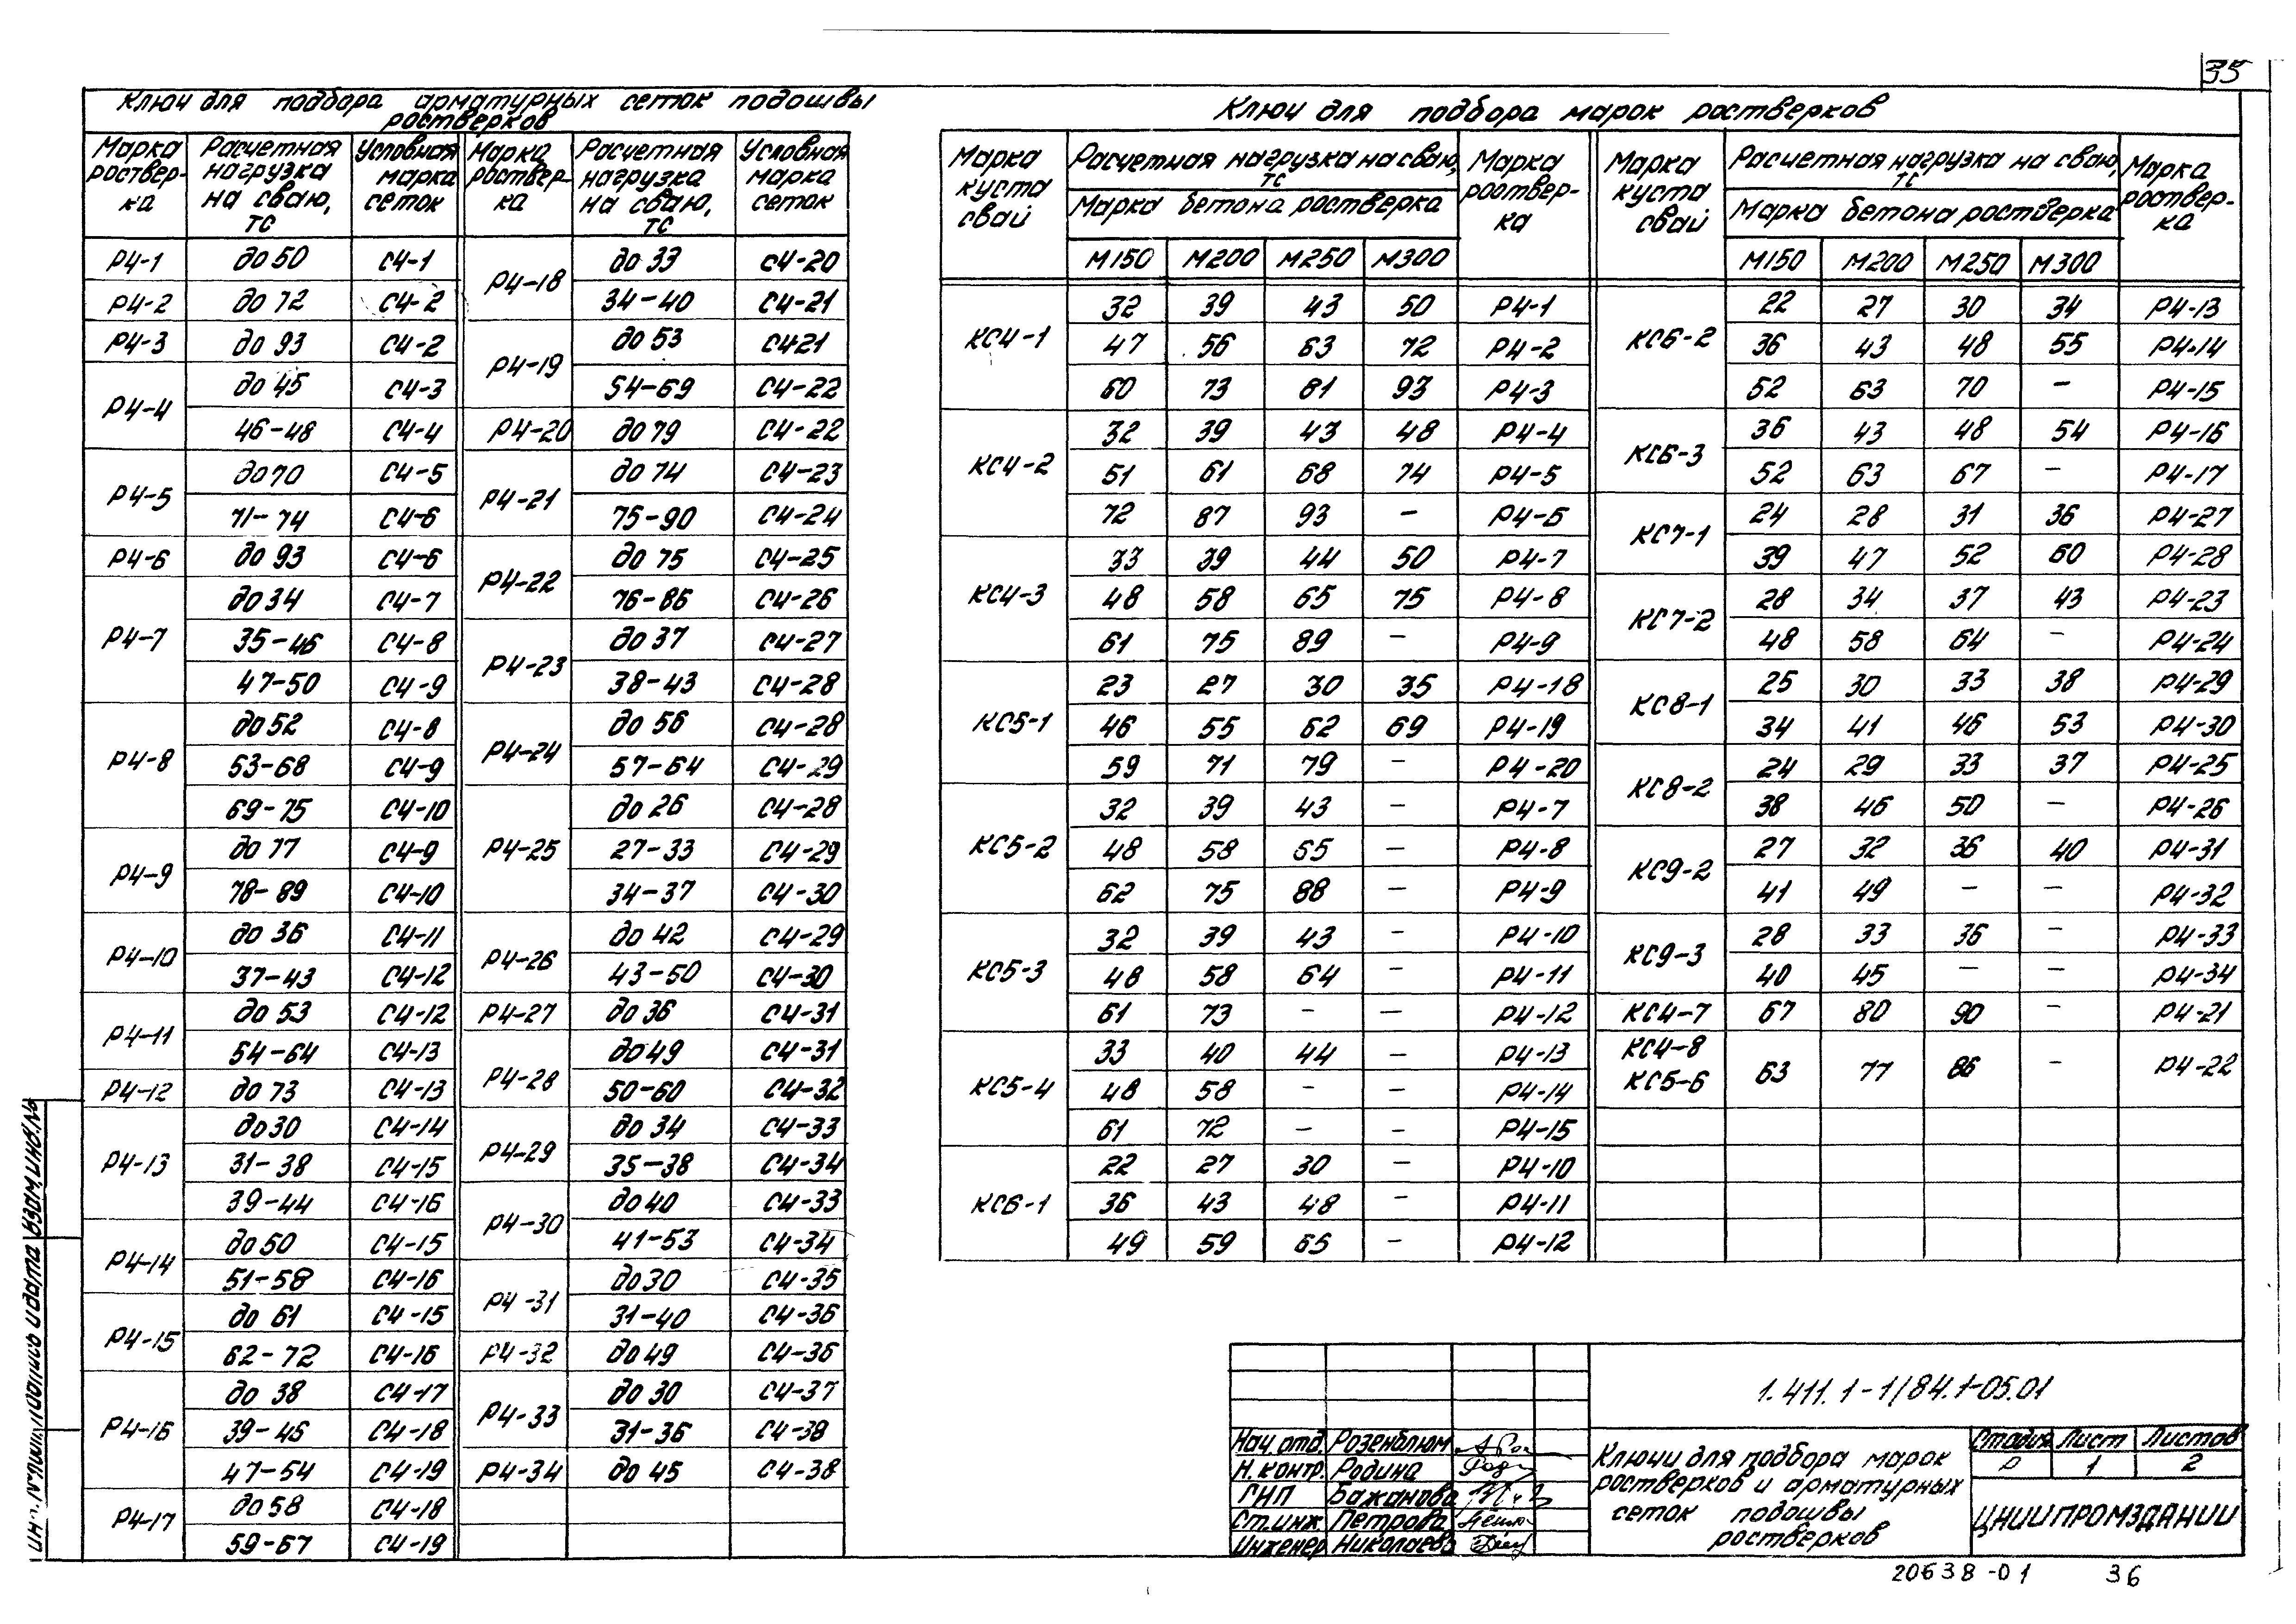 35
Ключ для подбора арматурных сеток подошвы
ростверков
Марка роствер-ка | Расчетная нагрузка на сваю, тс | Условная марка сеток | Марка роствер-ка | Расчетная нагрузка на сваю, тс | Условная марка сеток
Р4-1 | до 50 | С4-1 | Р4-18 | до 33 | С4-20
Р4-2 | до 72 | С4-2 | 34-40 | С4-21
Р4-3 | до 93 | С4-2 | Р4-19 | до 53 | С421
Р4-4 | до 45 | С4-3 | 54-69 | С4-22
46-48 | С4-4 | Р4-20 | до 79 | С4-22
Р4-5 | до 70 | С4-5 | Р4-21 | до 74 | С4-23
71-74 | С4-6 | 75-90 | С4-24
Р4-6 | до 93 | С4-6 | Р4-22 | до 75 | С4-25
Р4-7 | до 34 | С4-7 | 76-86 | С4-26
35-46 | С4-8 | Р4-23 | до 37 | С4-27
47-50 | С4-9 | 38-43 | С4-28
Р4-8 | до 52 | С4-8 | Р4-24 | до 56 | С4-28
53-68 | С4-9 | 57-64 | С4-29
69-75 | С4-10 | Р4-25 | до 26 | С4-28
Р4-9 | до 77 | С4-9 | 27-33 | С4-29
78-89 | С4-10 | 34-37 | С4-30
Р4-10 | до 36 | С4-11 | Р4-26 | до 42 | С4-29
37-43 | С4-12 | 43-50 | С4-30
Р4-11 | до 53 | С4-12 | Р4-27 | до 36 | С4-31
54-64 | С4-13 | Р4-28 | до 49 | С4-31
Р4-12 | до 73 | С4-13 | 50-60 | С4-32
Р4-13 | до 30 | С4-14 | Р4-29 | до 34 | С4-33
31-38 | С4-15 | 35-38 | С4-34
39-44 | С4-16 | Р4-30 | до 40 | С4-33
Р4-14 | до 50 | С4-15 | 41-53 | С4-34
51-58 | С4-16 | Р4-31 | до 30 | С4-35
Р4-15 | до 61 | С4-15 | 31-40 | С4-36
62-72 | С4-16 | Р4-32 | до 49 | С4-36
Р4-16 | до 38 | С4-17 | Р4-33 | до 30 | С4-37
39-46 | С4-18 | 31-36 | С4-38
47-54 | С4-19 | Р4-34 | до 45 | С4-38
Р4-17 | до 58 | С4-18
59-67 | С4-19
Ключ для подбора марок ростверков
Марка куста свай | Расчетная нагрузка на сваю, тс | Марка роствер-ка | Марка куста свай | Расчетная нагрузка на сваю, тс | Марка роствер-ка
Марка бетона ростверка | Марка бетона ростверка
М150 | М200 | М250 | М300 | М150 | М200 | М250 | М300
КС4-1 | 32 | 39 | 43 | 50 | Р4-1 | КС6-2 | 22 | 27 | 30 | 34 | Р4-13
47 | 56 | 63 | 72 | Р4-2 | 36 | 43 | 48 | 55 | Р4-14
60 | 73 | 81 | 93 | Р4-3 | 52 | 63 | 70 | - | Р4-15
КС4-2 | 32 | 39 | 43 | 48 | Р4-4 | КС6-3 | 36 | 43 | 48 | 54 | Р4-16
51 | 61 | 68 | 74 | Р4-5 | 52 | 63 | 67 | - | Р4-17
72 | 87 | 93 | - | Р4-6 | КС7-1 | 24 | 28 | 31 | 36 | Р4-27
КС4-3 | 33 | 39 | 44 | 50 | Р4-7 | 39 | 47 | 52 | 60 | Р4-28
48 | 58 | 65 | 75 | Р4-8 | КС7-2 | 28 | 34 | 37 | 43 | Р4-23
61 | 75 | 89 | - | Р4-9 | 48 | 58 | 64 | - | Р4-24
КС5-1 | 23 | 27 | 30 | 35 | Р4-18 | КС8-1 | 25 | 30 | 33 | 38 | Р4-29
46 | 55 | 62 | 69 | Р4-19 | 34 | 41 | 46 | 53 | Р4-30
59 | 71 | 79 | - | Р4-20 | КС8-2 | 24 | 29 | 33 | 37 | Р4-25
КС5-2 | 32 | 39 | 43 | - | Р4-7 | 38 | 46 | 50 | - | Р4-26
48 | 58 | 65 | - | Р4-8 | КС9-2 | 27 | 32 | 36 | 40 | Р4-31
62 | 75 | 88 | - | Р4-9 | 41 | 49 | - | - | Р4-32
КС5-3 | 32 | 39 | 43 | - | Р4-10 | КС9-3 | 28 | 33 | 36 | - | Р4-33
48 | 58 | 64 | - | Р4-11 | 40 | 45 | - | - | Р4-34
61 | 73 | - | - | Р4-12 | КС4-7 | 67 | 80 | 90 | - | Р4-21
КС5-4 | 33 | 40 | 44 | - | Р4-13 | КС4-8 КС5-6 | 63 | 77 | 86 | - | Р4-22
48 | 58 | - | - | Р4-14
61 | 72 | - | - | Р4-15
КС6-1 | 22 | 27 | 30 | - | Р4-10
36 | 43 | 48 | - | Р4-11
49 | 59 | 65 | - | Р4-12
1.411.1-1/84.1-05.01
Нач. отд. Розенблюм
Н. контр. Родина
ГИП Бажанова
Ст. инж. Петрова
Инженер Николаева
Ключи для подбора марок
ростверков и арматурных
сеток подошвы
ростверков
Стадия Лист Листов
Р 1 2
ЦНИИПРОМЗДАНИИ
20638-01 36